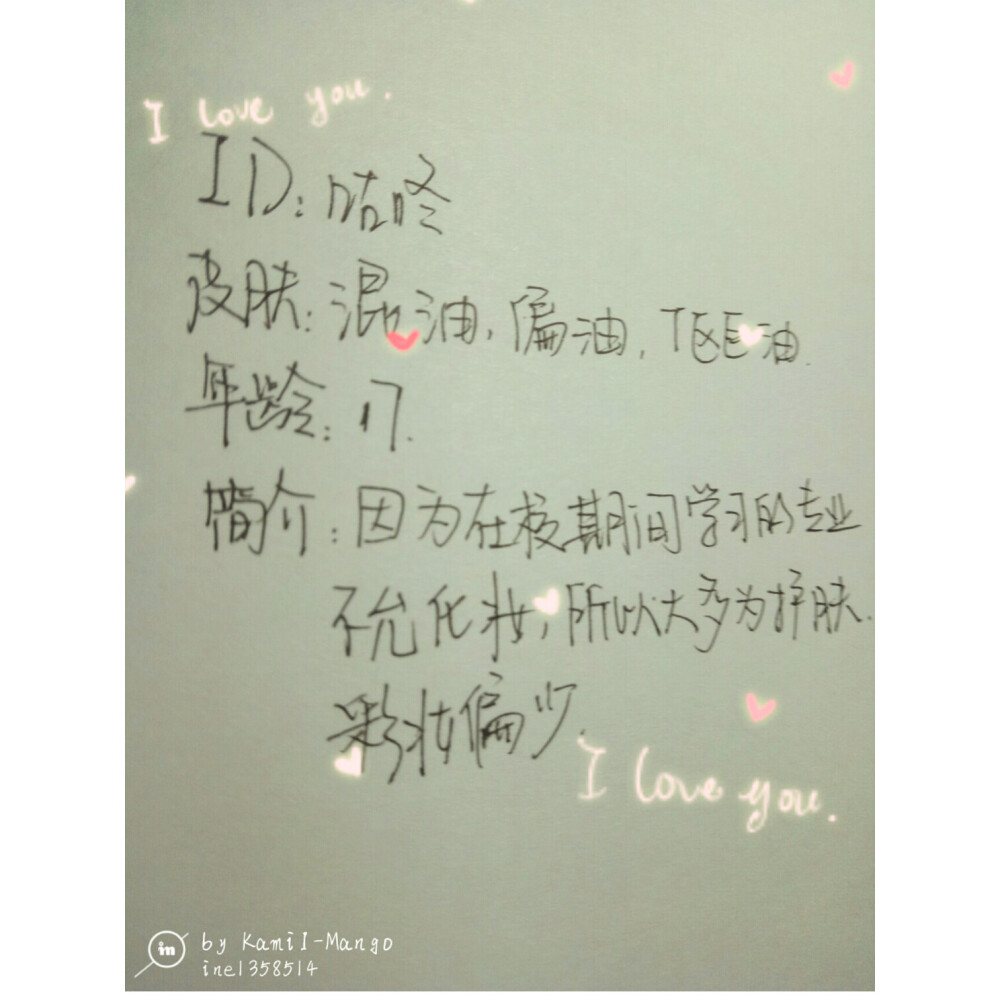 I love you.
ID:咕咚
皮肤:混油,偏油,T区油.
年龄:17.
简介:因为在校期间学习的专业
不允化妆,所以大多为护肤.
彩妆偏少.
I love you.
in by KamiI-Mango
ine1358514